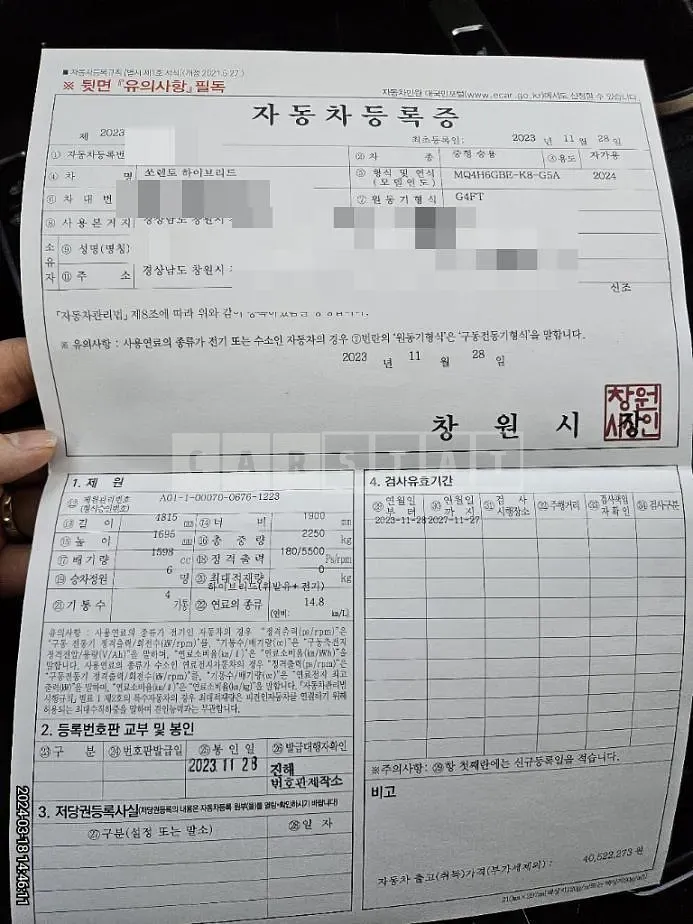 ■ 자동차등록규칙 [별지 제1호 서식] (개정 2021.5.27.)
※ 뒷면 『유의사항』 필독
자동차민원 대국민포털(www.ecar.go.kr)에서도 신청할 수 있습니다.
자동차등록증
제 2023
최초등록일: 2023 년 11 월 28 일
① 자동차등록번
② 차 종 중형 승용 ③용도 자가용
④ 차 명 쏘렌토 하이브리드
⑤ 형식 및 연식 (모델연도) MQ4H6GBE-K8-G5A 2024
⑥ 차 대 번
⑦ 원동기형식 G4FT
⑧ 사용본거지 경상남도 창원시
소유자
⑨ 성명(명칭)
⑪ 주 소 경상남도 창원시
신조
「자동차관리법」 제8조에 따라 위와 같이
※ 유의사항 : 사용연료의 종류가 전기 또는 수소인 자동차의 경우 ⑦번란의 '원동기형식'은 '구동전동기형식'을 말합니다.
2023 년 11 월 28 일
창 원 시 장
창원시장인
CARSTAT
1. 제 원
제원관리번호 (형식승인번호) A01-1-00070-0676-1223
⑬ 길 이 4815 mm ⑭ 너 비 1900 mm
⑮ 높 이 1695 mm ⑯ 총 중 량 2250 kg
⑰ 배기량 1598 cc ⑱ 정격출력 180/5500 Ps/rpm
⑲ 승차정원 6 명 ⑳ 최대적재량 0 kg
하이브리드(휘발유+전기)
㉑ 기통수 4 기통 ㉒ 연료의 종류 (연비: 14.8 km/L)
유의사항 : 사용연료의 종류가 전기인 자동차의 경우 "정격출력(ps/rpm)"은
"구동 전동기 정격출력/회전수(kW/rpm)"를, "기통수/배기량(cc)"은 "구동축전지
정격전압/용량(V/Ah)"을 말하며, "연료소비율(km/ℓ)"은 "연료소비율(km/kWh)"을
말합니다. 사용연료의 종류가 수소인 연료전지자동차의 경우 "정격출력(ps/rpm)"은
"구동전동기 정격출력/회전수(kW/rpm)"를, "기통수/배기량(cc)"은 "연료전지 최고
출력(kW)"을 말하며, "연료소비율(km/ℓ)"은 "연료소비율(km/kg)"을 말합니다. 「자동차관리법
시행규칙」 별표 1 제2호의 특수자동차의 경우 최대적재량은 피견인자동차를 연결하기 위해
허용되는 최대수직하중을 말하며 견인능력과는 무관합니다.
2. 등록번호판 교부 및 봉인
㉓구 분 ㉔번호판발급일 ㉕봉 인 일 ㉖발급대행자확인
2023. 11. 28 진해 번호판제작소
3. 저당권등록사실(저당권등록의 내용은 자동차등록 원부(을)를 열람·확인하시기 바랍니다)
㉗구분(설정 또는 말소) ㉘일 자
4. 검사유효기간
㉙연월일 부터 ㉚연월일 까지 ㉛검 사 시행장소 ㉜주행거리 ㉝검사책임 자확인 ㉞검사구분
2023-11-28 2027-11-27
※주의사항: ㉙항 첫째란에는 신규등록일을 적습니다.
비고
자동차 출고(취득)가격(부가세제외) : 40,522,273 원
2024-03-18 14:46:11